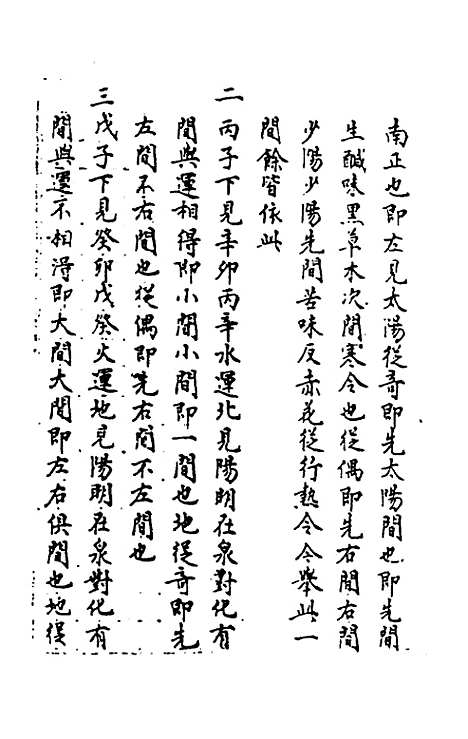 南正也即左見太陽從奇即先太陽間也即先間
生鹹味黑草木次間寒令也從偶即先右間右間
少陽少陽先間苦味反赤花從行熱令今舉此一
間餘皆依此
二丙子下見辛卯丙辛水運北見陽明在泉對化有
間與運相得即小間小間即一間也地從奇即先
左間不右間也從偶即先右間不左間也
三戊子下見癸卯戊癸火運地見陽明在泉對化有
間與運不相得即大間大間即左右俱間也地從